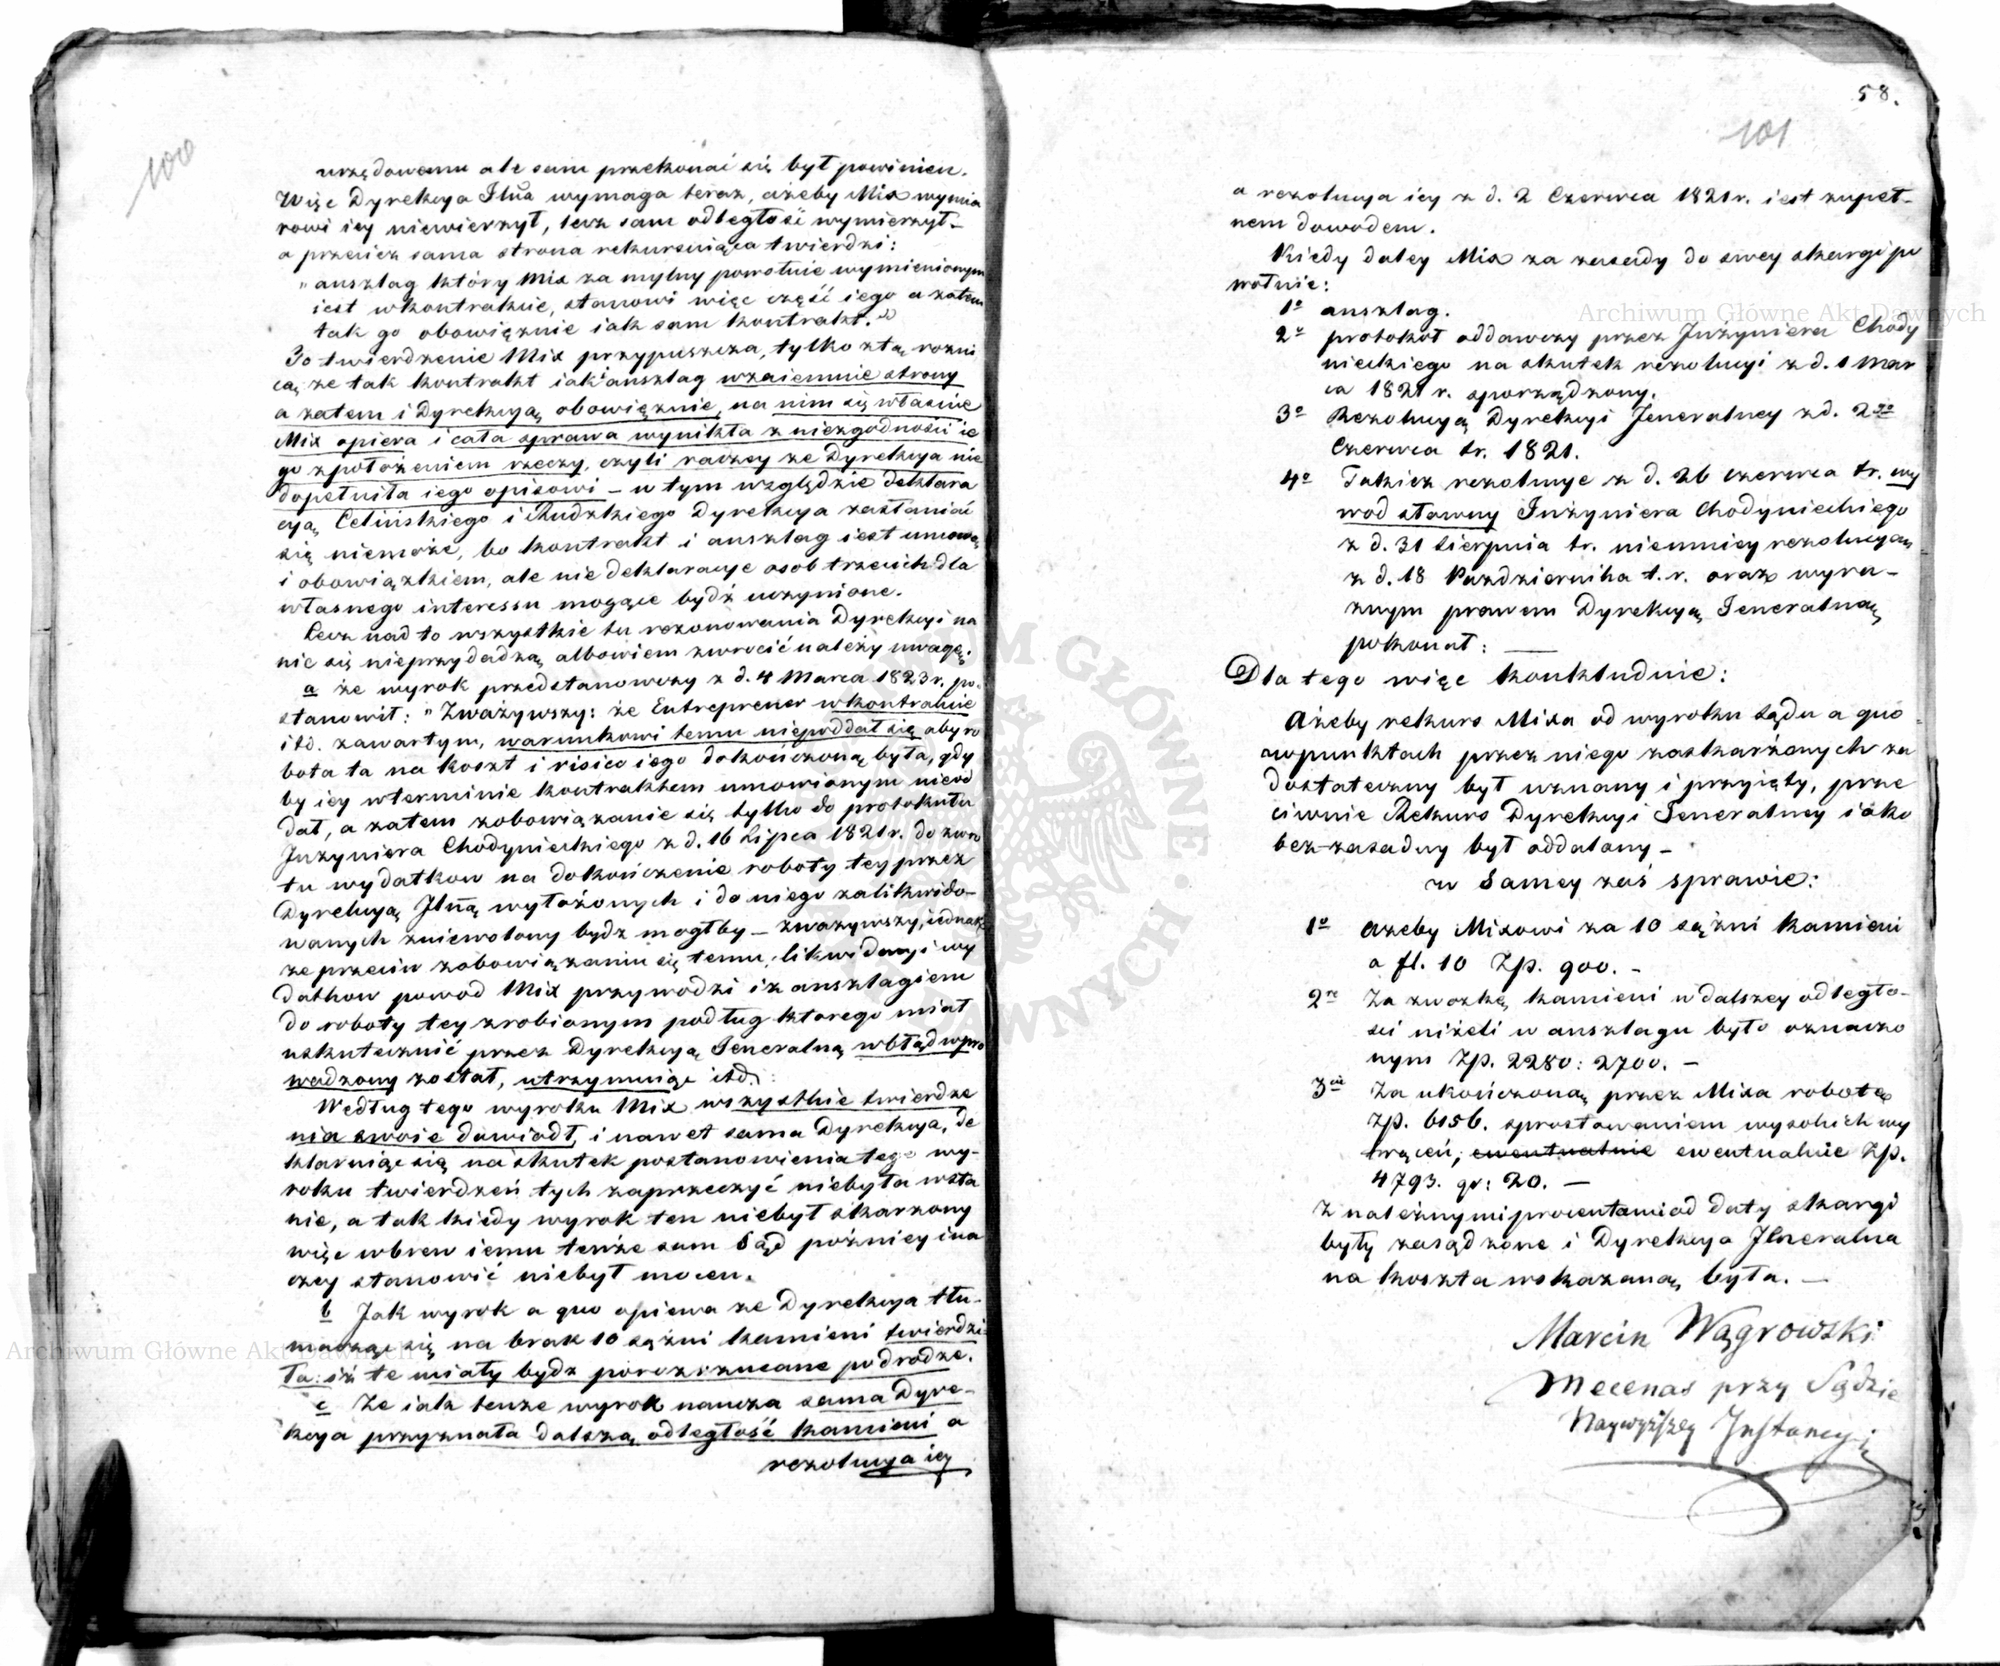 100
urzędowemu ale sam przekonać się był powinien.
Więc Dyrekcya Jlna wymaga teraz, ażeby Mix wymia
rowi iey niewierzył, lecz sam odległość wymierzył –
a przecież sama strona rekursuiąca twierdzi:
„anszlag który Mix za mylny powołuie wymienionym
iest wkontrakcie, stanowi więc część iego a zatem
tak go obowięznie iak sam kontrakt."
To twierdzenie Mix przypuszcza, tylko ztą rożni
cą, że tak kontrakt iak i anszlag wzaiemnie strony
a zatem i Dyrekcyą obowięznie, na nim się własnie
Mix opiera i cała sprawa wynikła z niezgodności ie
go zpołożeniem rzeczy, czyli raczey że Dyrekcya nie
dopełniła iego opisowi – w tym względzie deklara
cyą Celińskiego i Rudzkiego Dyrekcya zasłaniać
się niemoże, bo kontrakt i anszlag iest umową
i obowiązkiem, ale nie deklaracye osob trzecich dla
własnego interessu mogące bydź uczynione.
Lecz nad to wszystkie tu rezonowania Dyrekcyi na
nic się nieprzydadzą, albowiem zwrocić należy uwagę:
a że wyrok przedstanowczy z d. 4 Marca 1823 r. po-
stanowił: „Zważywszy: że Entreprener wkontrakcie
itd. zawartym, warunkowi temu niepoddał się aby ro
bota ta na koszt i risico iego dokończoną była, gdy
by iey wterminie kontraktem umowionym nieod
dał, a zatem zobowiązanie się tylko do protokułu
Inżyniera Chodynieckiego z d. 16 Lipca 1821 r. do zwro
tu wydatkow na dokończenie roboty tey przez
Dyrekcyą Jlną wyłożonych i do niego zalikwido–
wanych zniewolony bydz mogłby – zważywszy, iednak
że przeciw zobowiązaniu się temu, likwidacyi wy
datkow powod Mix przywodzi iż anszlagiem
do roboty tey zrobionym podług ktorego miał
uskutecznić przez Dyrekcyą Jeneralną wbłąd wpro
wadzony został, utrzymuiąc itd.:
Według tego wyroku Mix wszystkie twierdze
nia swoie dowiodł, i nawet sama Dyrekcya, de
klaruiąc się na skutek postanowienia tego wy-
roku twierdzeń tych zaprzeczyć niebyła wsta
nie, a tak kiedy wyrok ten niebył skarzony
więc wbrew iemu tenże sam Sąd pożniey ina
czey stanowić niebył mocen.
b Jak wyrok a quo opiewa że Dyrekcya tłu-
macząc się na brak 10 sążni kamieni twierdzi
ła: iż te miały bydz porozrzucane po drodze.
c Że iak tenże wyrok naucza sama Dyre-
kcya przyznała dalszą odległość kamieni a
rezolucya iey
58.
101
a rezolucya iey z d. 2 Czerwca 1821 r. iest zupeł–
nem dowodem.
Kiedy daley Mix za zasady do swey skargi po
wołuie:
1o anszlag.
2o protokoł oddawczy przez Inżyniera Chody
nieckiego na skutek rezolucyi z d. 1 Mar
ca 1821 r. sporządzony.
3o Rezolucyą Dyrekcyi Jeneralney z d. 2go
Czerwca tr. 1821.
4o Takież rezolucye z d. 26 Czerwca tr. wy
wod słowny Inżyniera Chodynieckiego
z d. 31 Sierpnia tr. niemniey rezolucyą
z d. 18 Pazdziernika t. r. oraz wyra–
znym prawem Dyrekcyą Jeneralną
pokonał: —
Dla tego więc konkluduie:
Ażeby rekurs Mixa od wyroku Sądu a quo
wpunktach przez niego zaskarżonych za
dostateczny był uznany i przyięty, prze
ciwnie Rekurs Dyrekcyi Jeneralney iako
bezzasadny był oddalony –
w Samey zaś sprawie:
1o Ażeby Mixowi za 10 sążni kamieni
a fl. 10 Zp. 900. –
2re Za zwozkę kamieni w dalszey odległo–
sci niżeli w anszlagu było oznaczo
nym Zp. 2280: 2700. –
3cie Za ukończoną przez Mixa robotę
Zp. 6156. sprostowaniem wysokich wy
trąceń, ewentualnie ewentualnie Zp.
4793. gr: 20. —
Z należnymi procentami od daty skargi
były zasądzone i Dyrekcya Jlneralna
na koszta wskazaną była. —
Marcin Wągrowski
Mecenas przy Sądzie
Naywyższey Instancyi
Archiwum Główne Akt Dawnych
Archiwum Główne Akt Dawnych